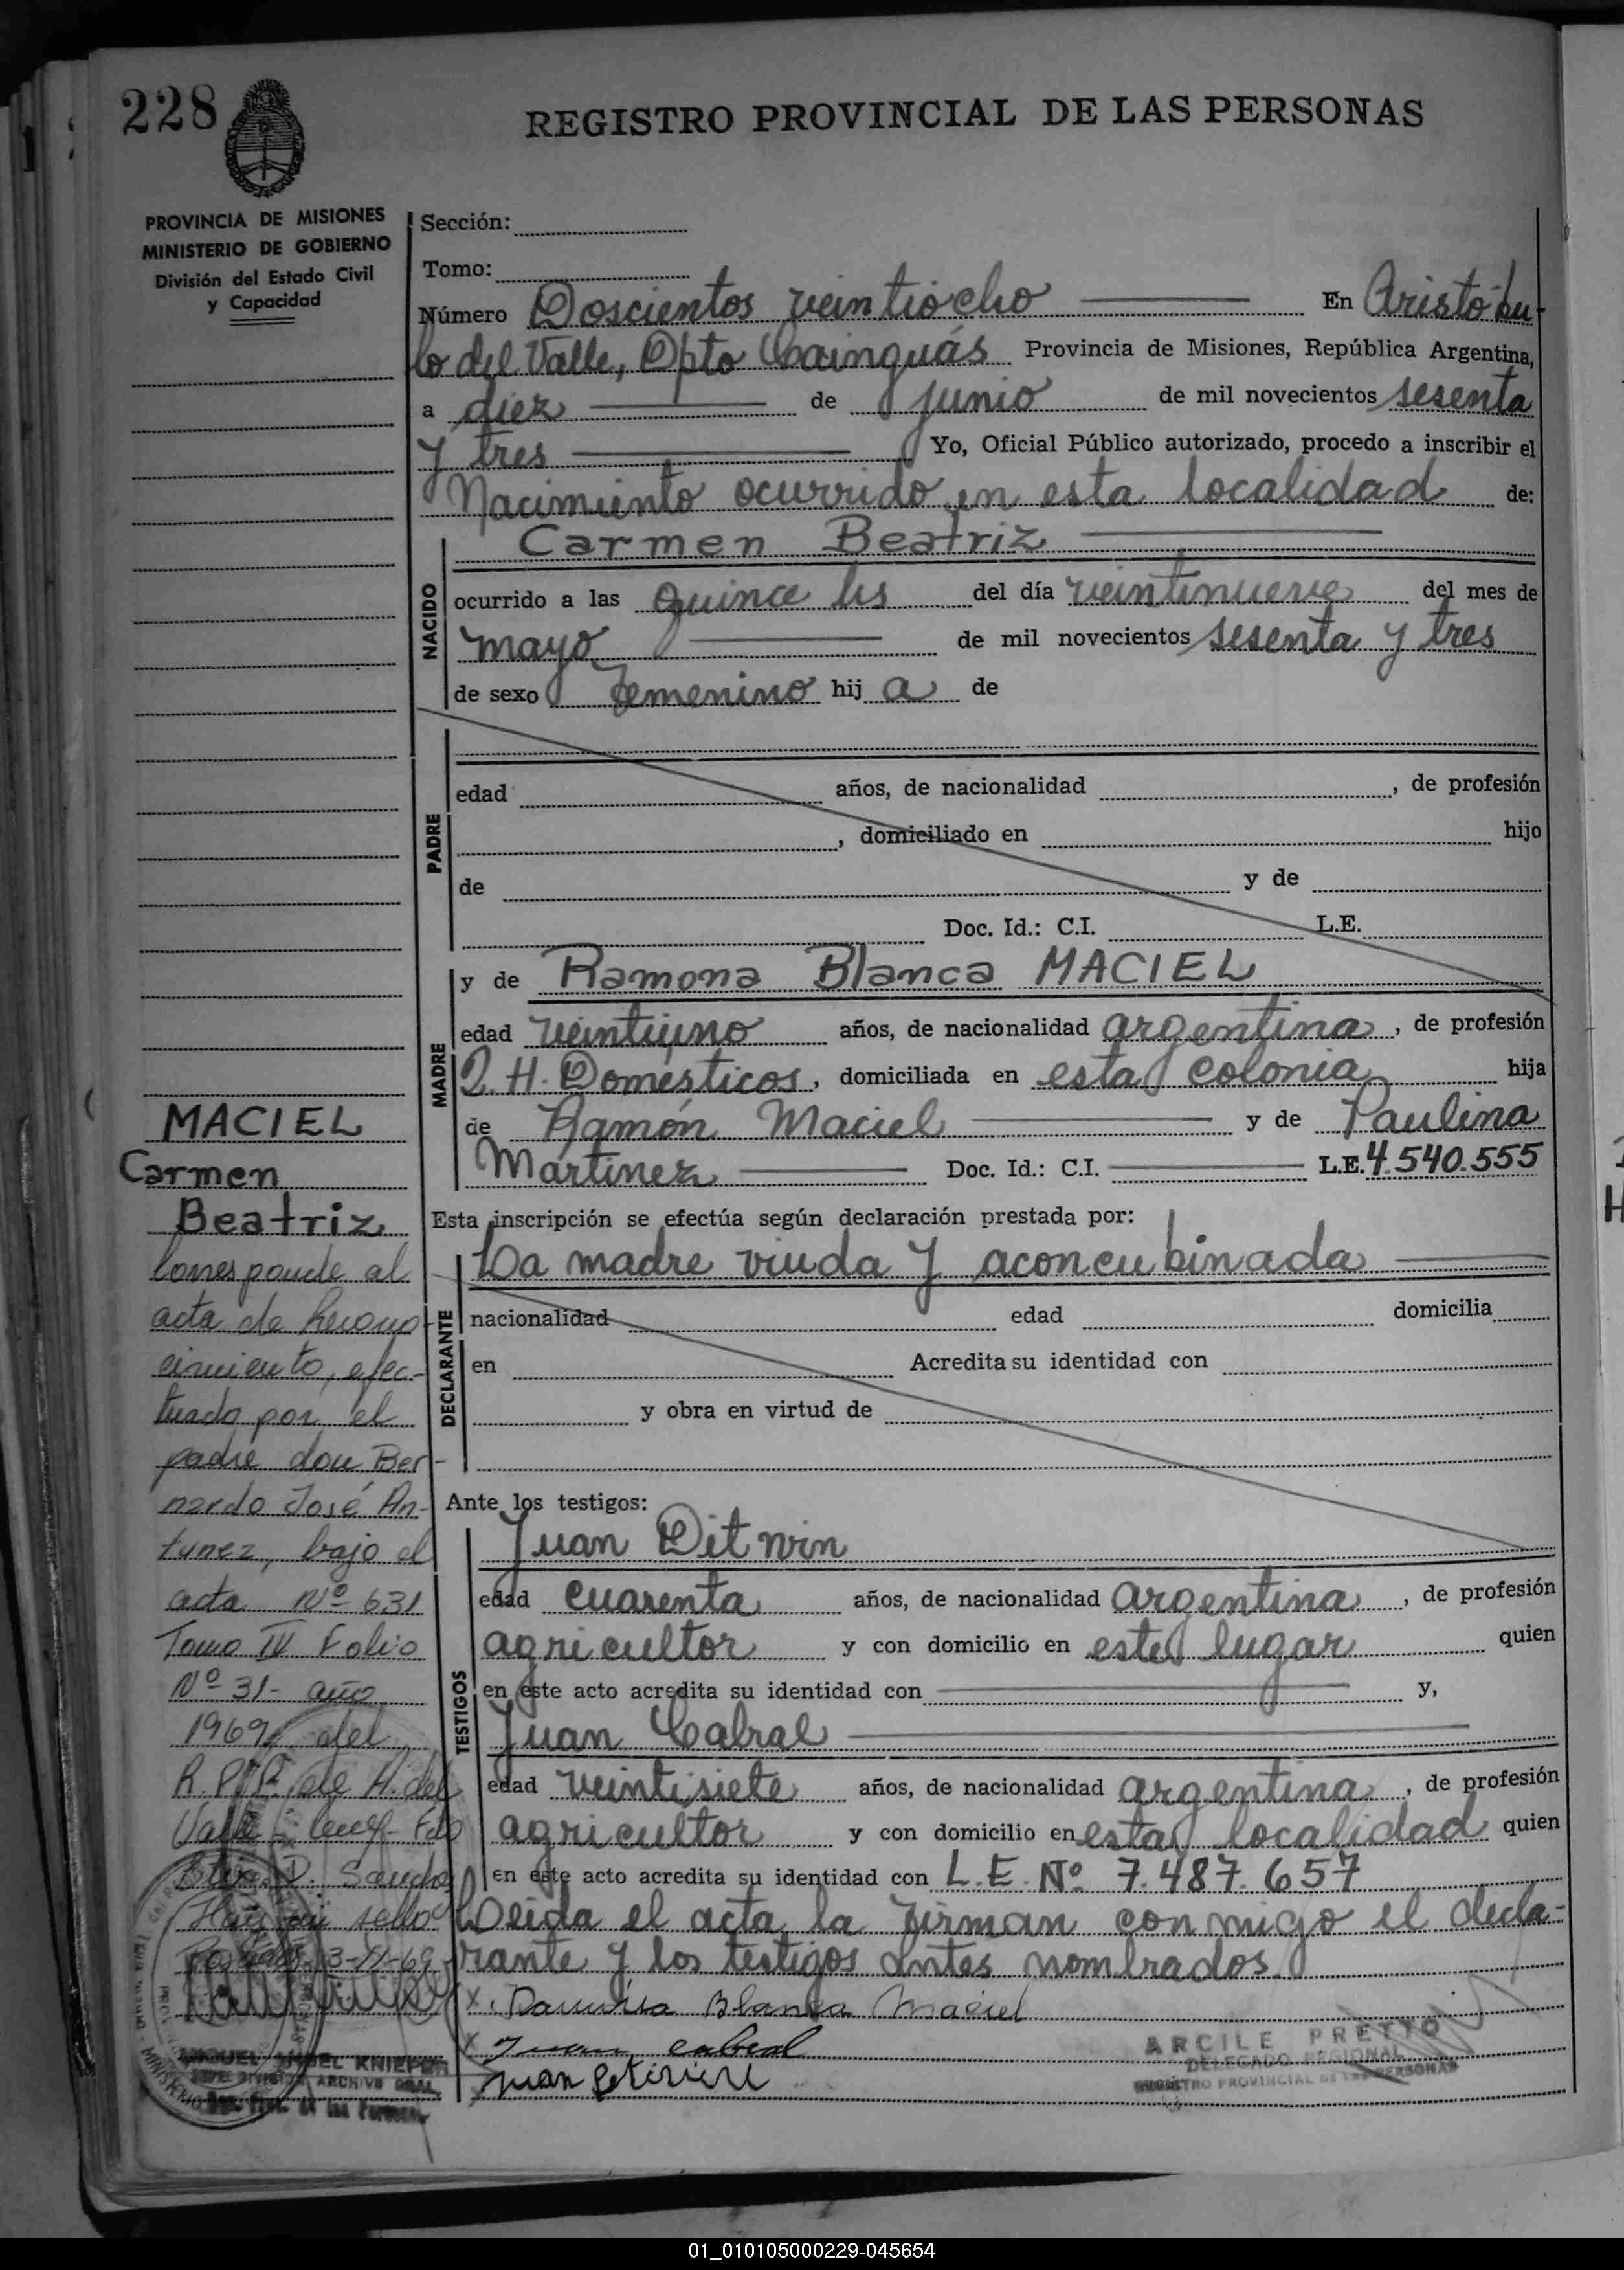 228
REGISTRO PROVINCIAL DE LAS PERSONAS
PROVINCIA DE MISIONES
MINISTERIO DE GOBIERNO
División del Estado Civil
y Capacidad
Sección:
Tomo:
Número Doscientos veintiocho En Aristóbu-
lo del Valle, Dpto Cainguás Provincia de Misiones, República Argentina,
a diez de junio de mil novecientos sesenta
y tres Yo, Oficial Público autorizado, procedo a inscribir el
Nacimiento ocurrido en esta localidad de:
Carmen Beatriz
NACIDO
ocurrido a las quince hs del día veintinueve del mes de
mayo de mil novecientos sesenta y tres
de sexo femenino hij a de
PADRE
edad años, de nacionalidad , de profesión
, domiciliado en hijo
de y de
Doc. Id.: C.I. L.E.
MADRE
y de Ramona Blanca MACIEL
edad veintiuno años, de nacionalidad argentina, de profesión
Q. H. Domésticos, domiciliada en esta colonia hija
de Ramón Maciel y de Paulina
Martinez Doc. Id.: C.I. L.E. 4.540.555
Esta inscripción se efectúa según declaración prestada por:
DECLARANTE
La madre viuda y aconcubinada
nacionalidad edad domicilia
en Acredita su identidad con
y obra en virtud de
Ante los testigos:
TESTIGOS
Juan Ditwin
edad cuarenta años, de nacionalidad argentina, de profesión
agricultor y con domicilio en este lugar quien
en este acto acredita su identidad con y,
Juan Cabral
edad veintisiete años, de nacionalidad argentina, de profesión
agricultor y con domicilio en esta localidad quien
en este acto acredita su identidad con L.E. Nº 7.487.657
Leida el acta la firman conmigo el decla-
rante y los testigos antes nombrados.
x. Ramona Blanca Maciel
x Juan cabral
Juan
ARCILE PRETTO
DELEGADO REGIONAL
REGISTRO PROVINCIAL DE LAS PERSONAS
MACIEL
Carmen
Beatriz
Corresponde al
acta de Recono-
cimiento, efec-
tuado por el
padre don Ber-
nardo José An-
tunez, bajo el
acta Nº 631
Tomo IV Folio
Nº 31- año
1969, del
R.P.P. de A. del
Valle Fdo
D. Sancho
sello
Posadas, 3-11-69
MIGUEL ANGEL KNIEPOR
JEFE DIVISION ARCHIVO GRAL.
Reg. Prov. de las Personas
01_010105000229-045654